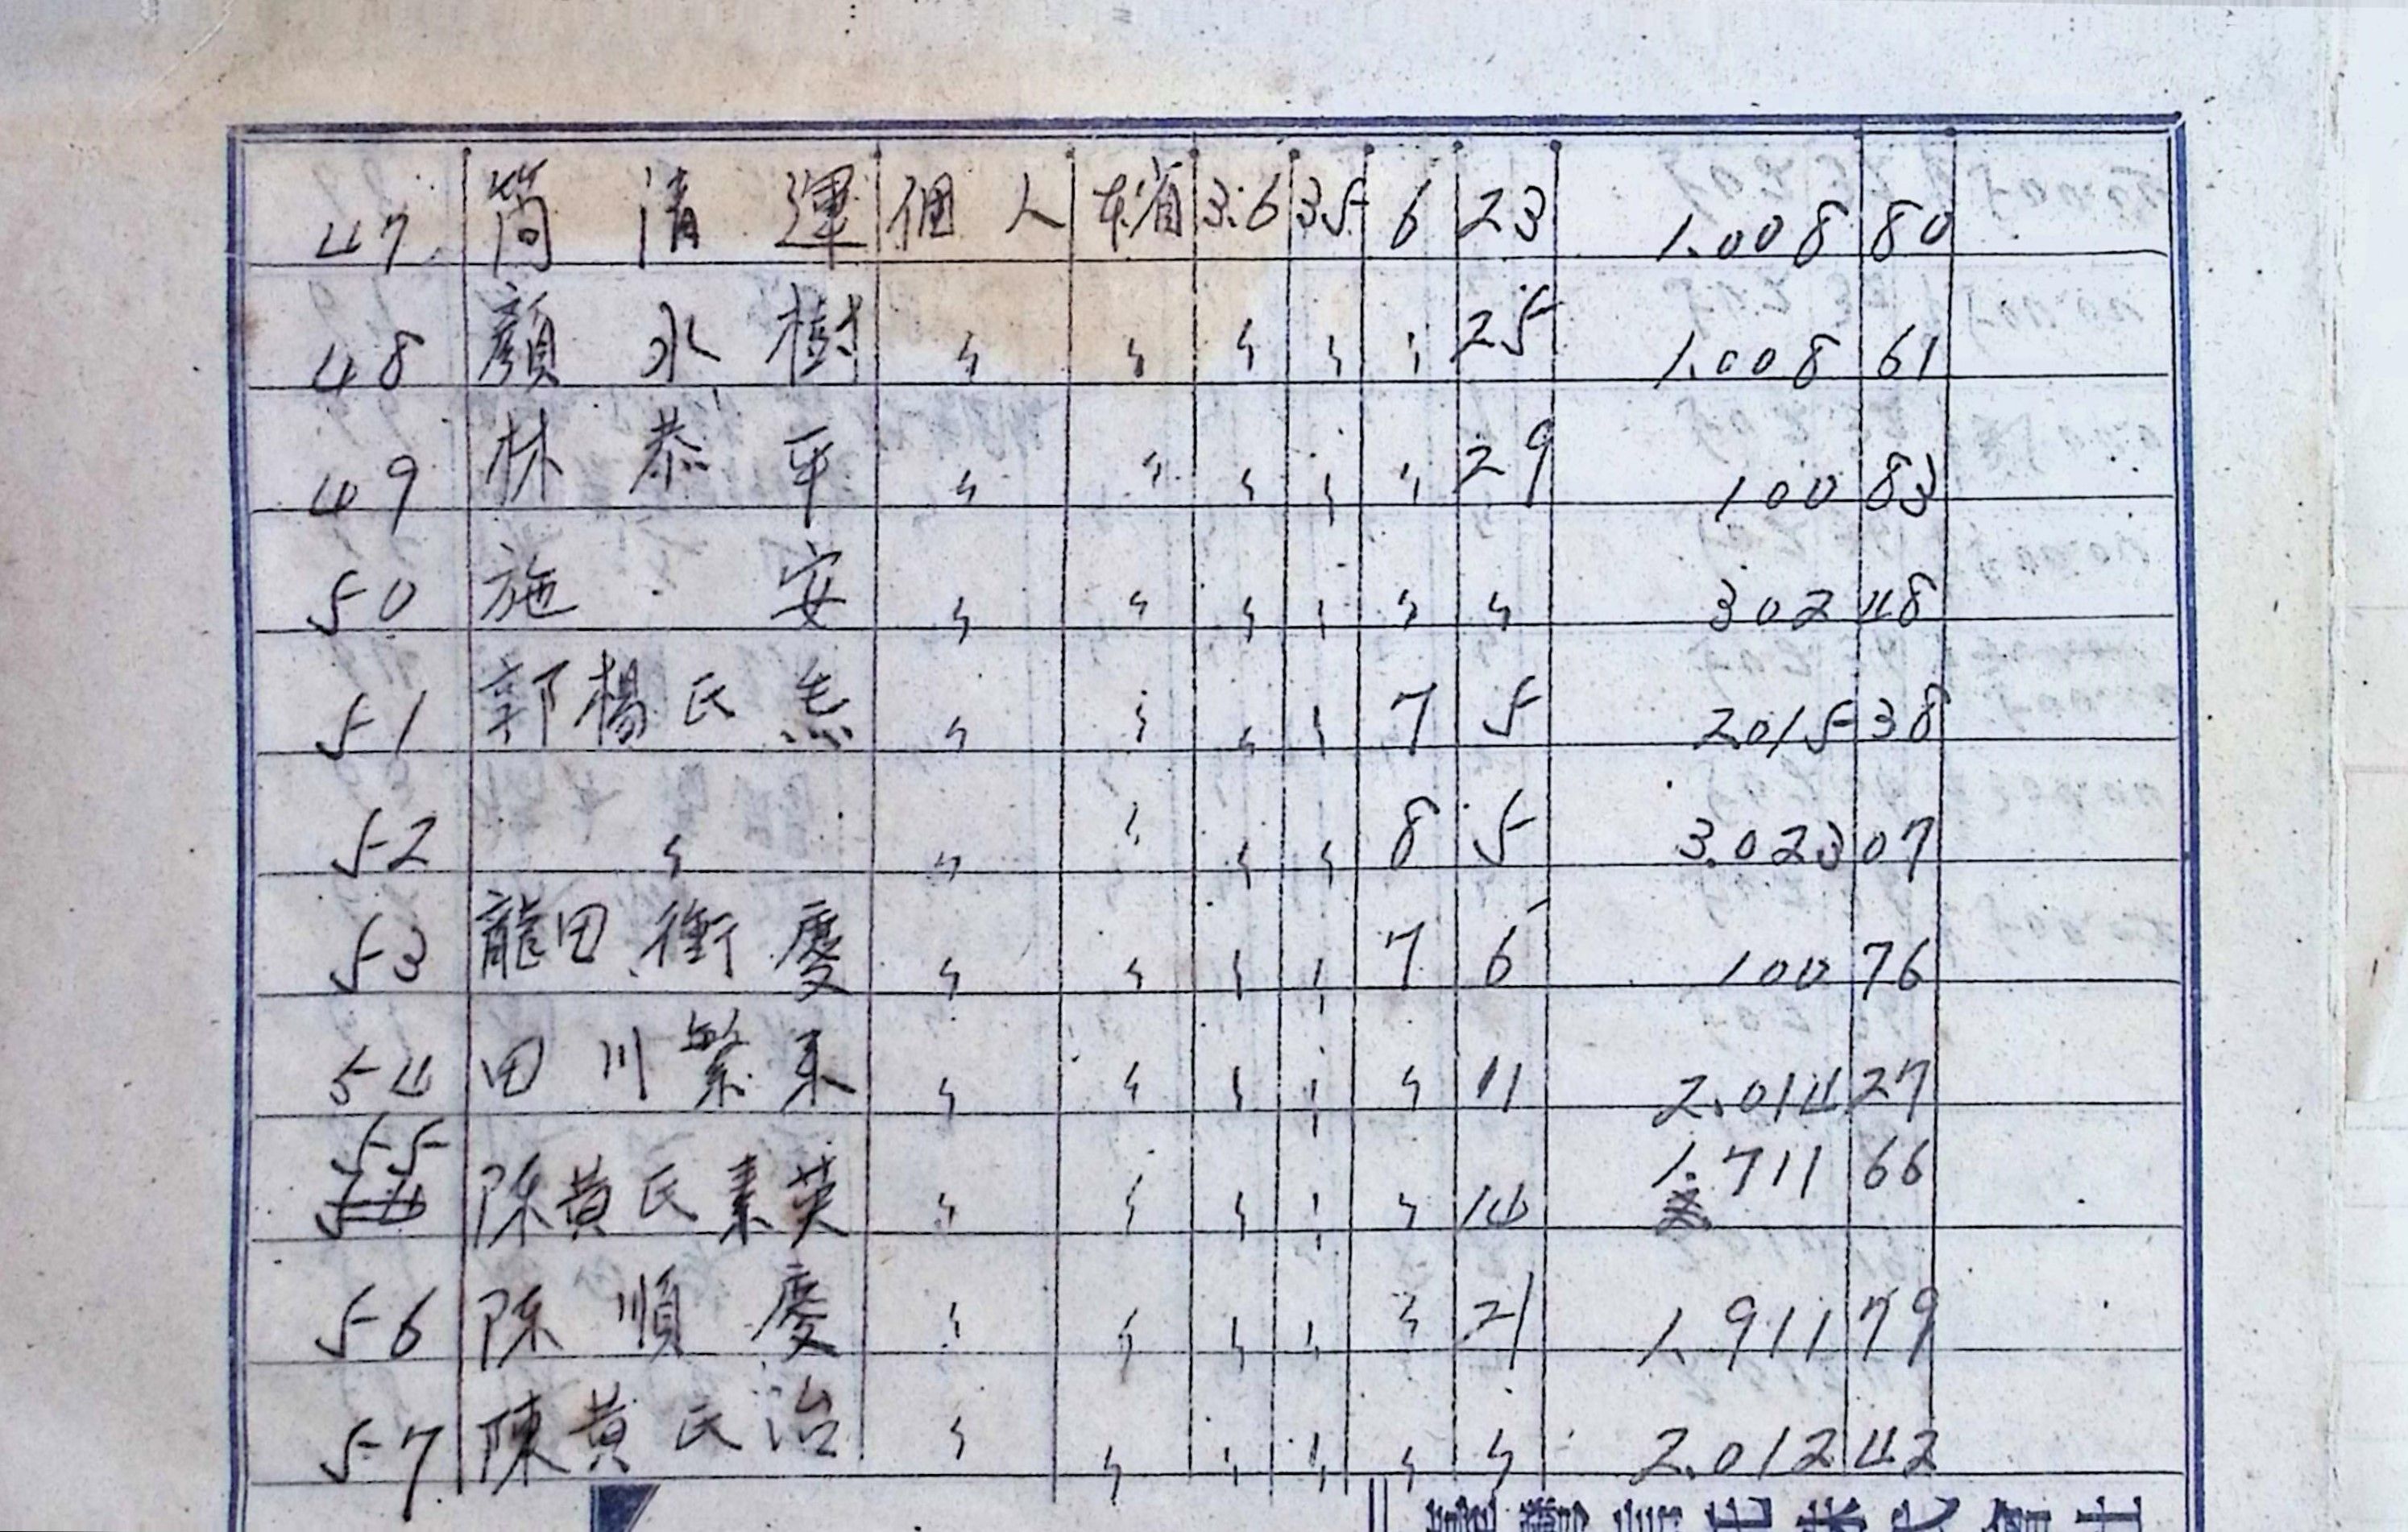 47 簡清運 個人 本省 3.6 35 6 23 1.008 80
48 顏水樹 〃 〃 〃 〃 〃 25 1.008 61
49 林恭平 〃 〃 〃 〃 〃 29 100 83
50 施安 〃 〃 〃 〃 〃 〃 302 48
51 郭楊氏 〃 〃 〃 〃 7 5 2015 38
52 〃 〃 〃 〃 〃 8 5 3.023 07
53 龍田衝慶 〃 〃 〃 〃 7 6 100 76
54 田川繁 〃 〃 〃 〃 〃 11 2.014 27
55 陳黃氏素英 〃 〃 〃 〃 〃 14 1.711 66
56 陳順慶 〃 〃 〃 〃 〃 21 1.911 79
57 陳黃氏治 〃 〃 〃 〃 〃 〃 2.012 42